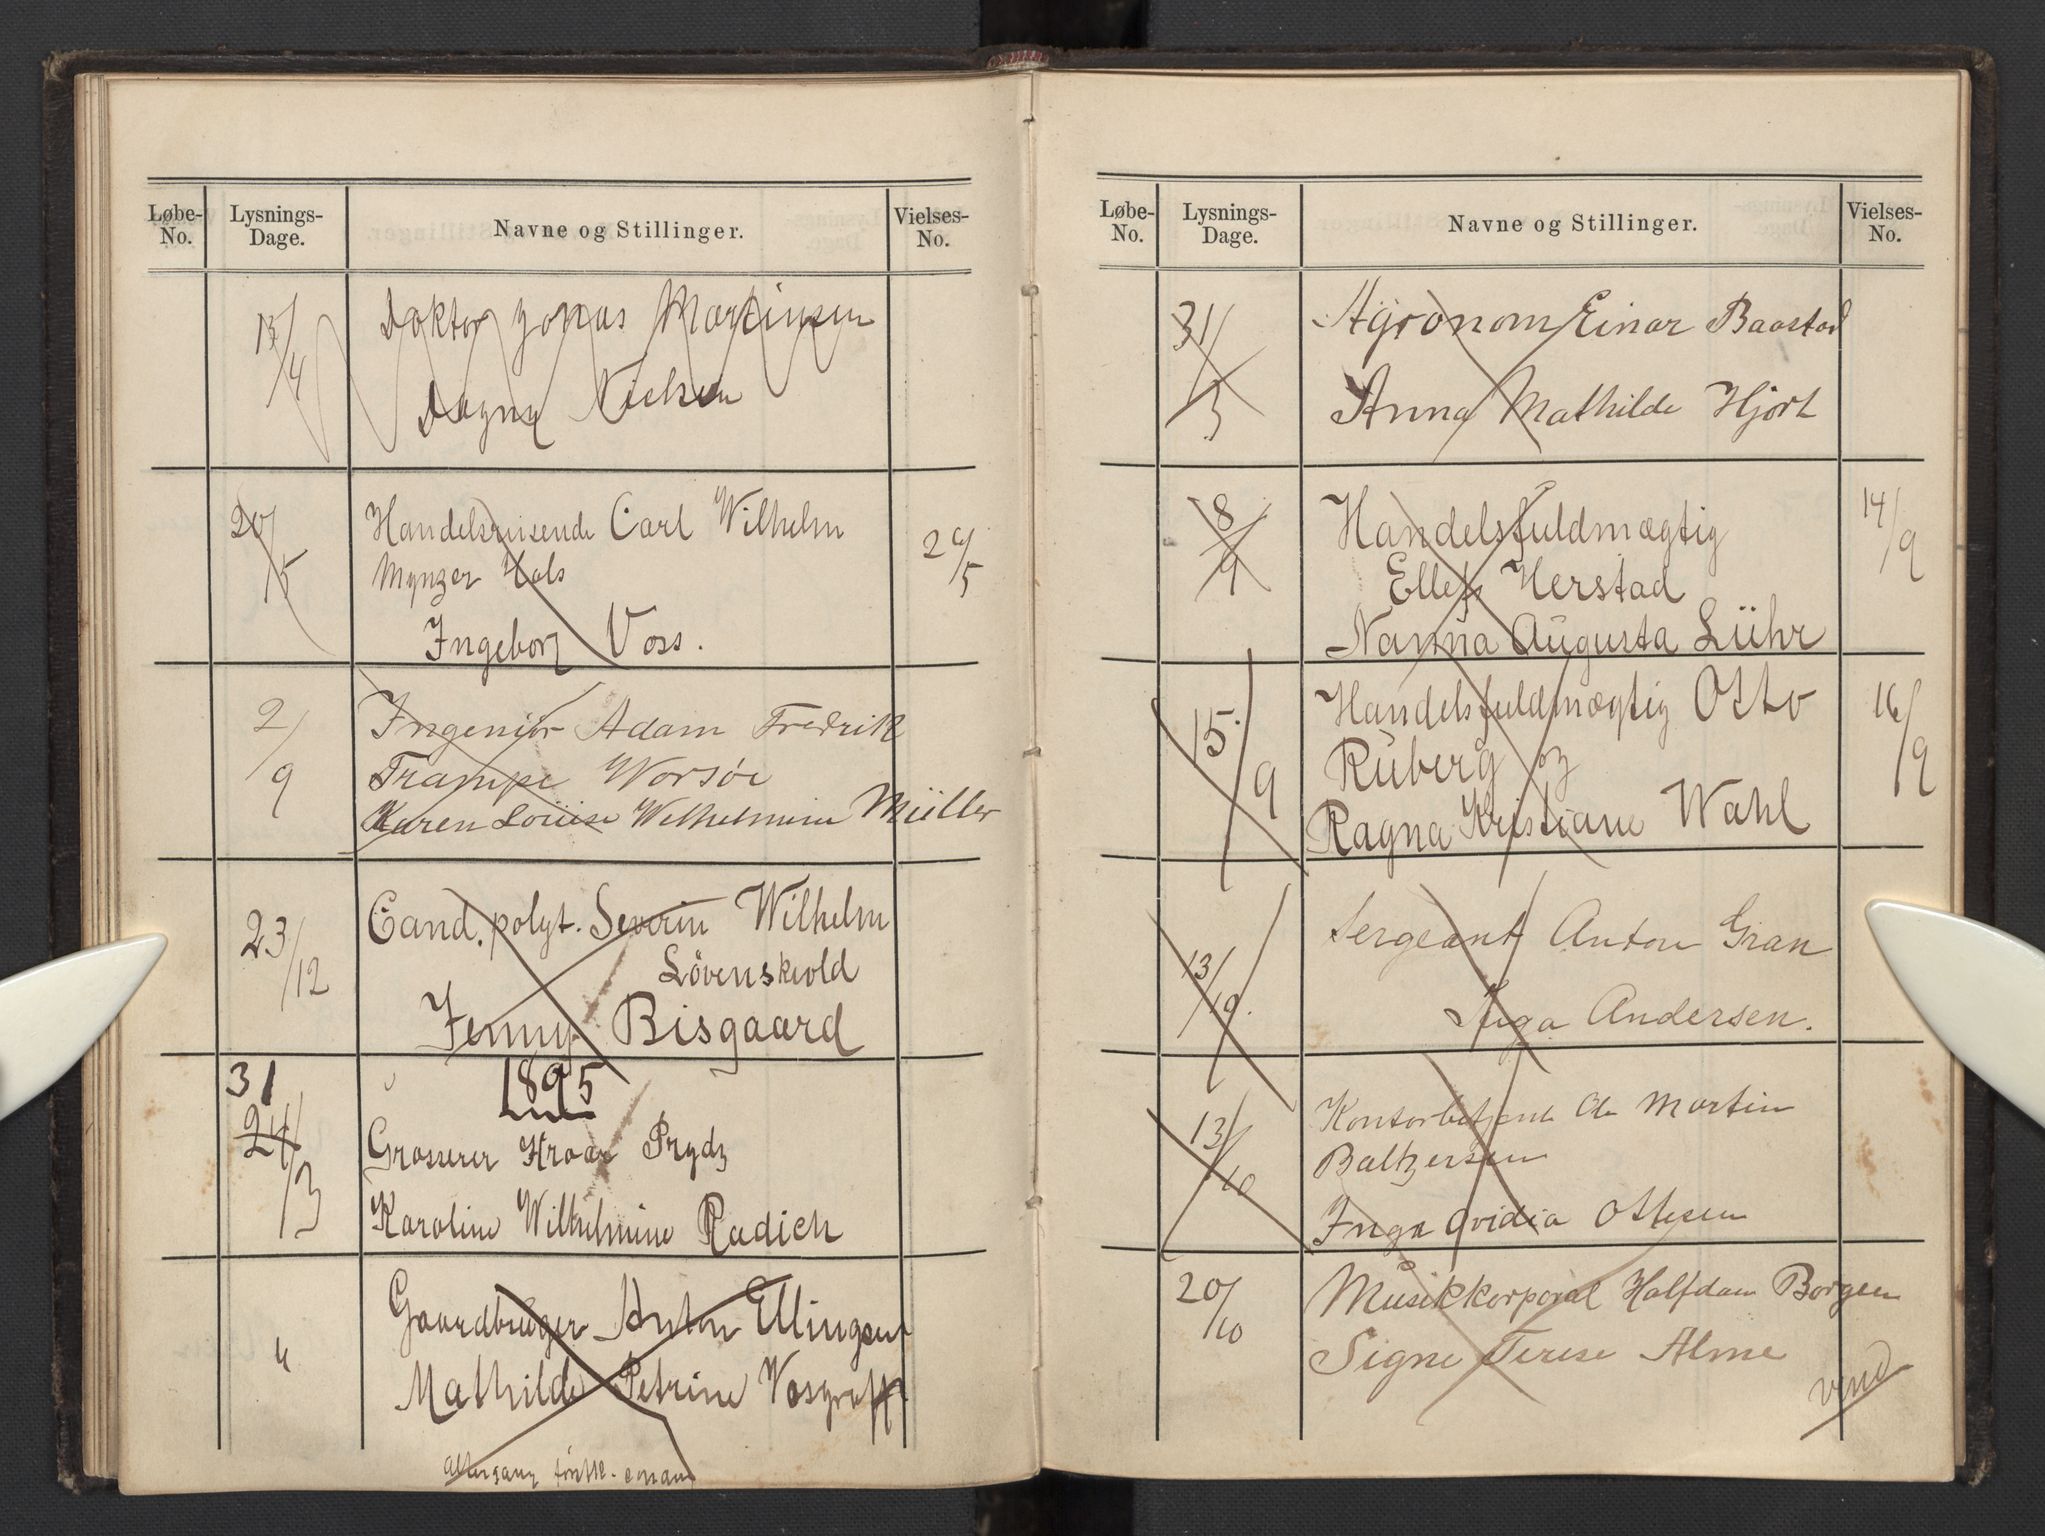 Løbe-No. Lysnings-Dage. Navne og Stillinger. Vielses-No.
13/4 Doktor Jonas Martinsen
Dagny Nielsen
20/5 Handelsreisende Carl Wilhelm 29/5
Mynzer Hals
Ingeborg Voss.
2/9 Ingeniør Adam Fredrik
Trampe Worsöe
Karen Louise Wilhelmine Müller
23/12 Cand. polyt. Severin Wilhelm
Lövenskiold
Jenny Bisgaard
1895
31
24/3 Grosserer Hroar Prydz
Karoline Wilhelmine Radich
" Gaardbruger Anton Ellingsen
Mathilde Petrine Vosgraff
Løbe-No. Lysnings-Dage. Navne og Stillinger. Vielses-No.
31/3 Agronom Einar Baastad
Anna Mathilde Hjort
8/9 Handelsfuldmægtig 14/9
Ellef Herstad
Nanna Augusta Lühr
15./9 Handelsfuldmægtig Otto 16/9
Ruberg og
Ragna Kristiane Wahl
13/10. Sergeant Anton Gran
Inga Andersen.
13/10 Kontorbetjent Ole Martin
Baltzersen
Inga Ovidia Ottesen
20/10 Musikkorporal Halfdan Borgen
Signe Terese Alme
vend